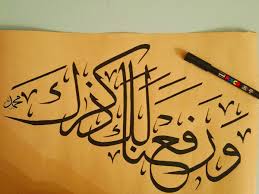 وَرَفَعْنَا لَكَ ذِكْرَكَ
محمد